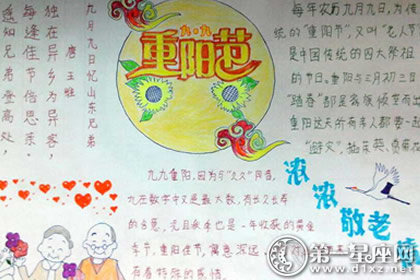 九月九日忆山东兄弟
唐 王维
独在异乡为异客,
每逢佳节倍思亲
遥知兄弟登高处,
九·九
重阳节
每年农历九月九日,为传
统的"重阳节",又叫"老人节"
是中国传统的四大祭祖
的节日。重阳与三月初三日
"踏春"都是家族倾室而出
重阳这天所有亲人都要一起
"避灾",插茱萸、赏菊
九九重阳,因为与"久久"同音,
九在数字中又是最大数,有长久长寿
的含意,况且秋季也是一年收获的黄金
季节,重阳佳节,寓意深远,
有着特殊的感情
浓浓敬老情
第一星座网
www.d1xz.net